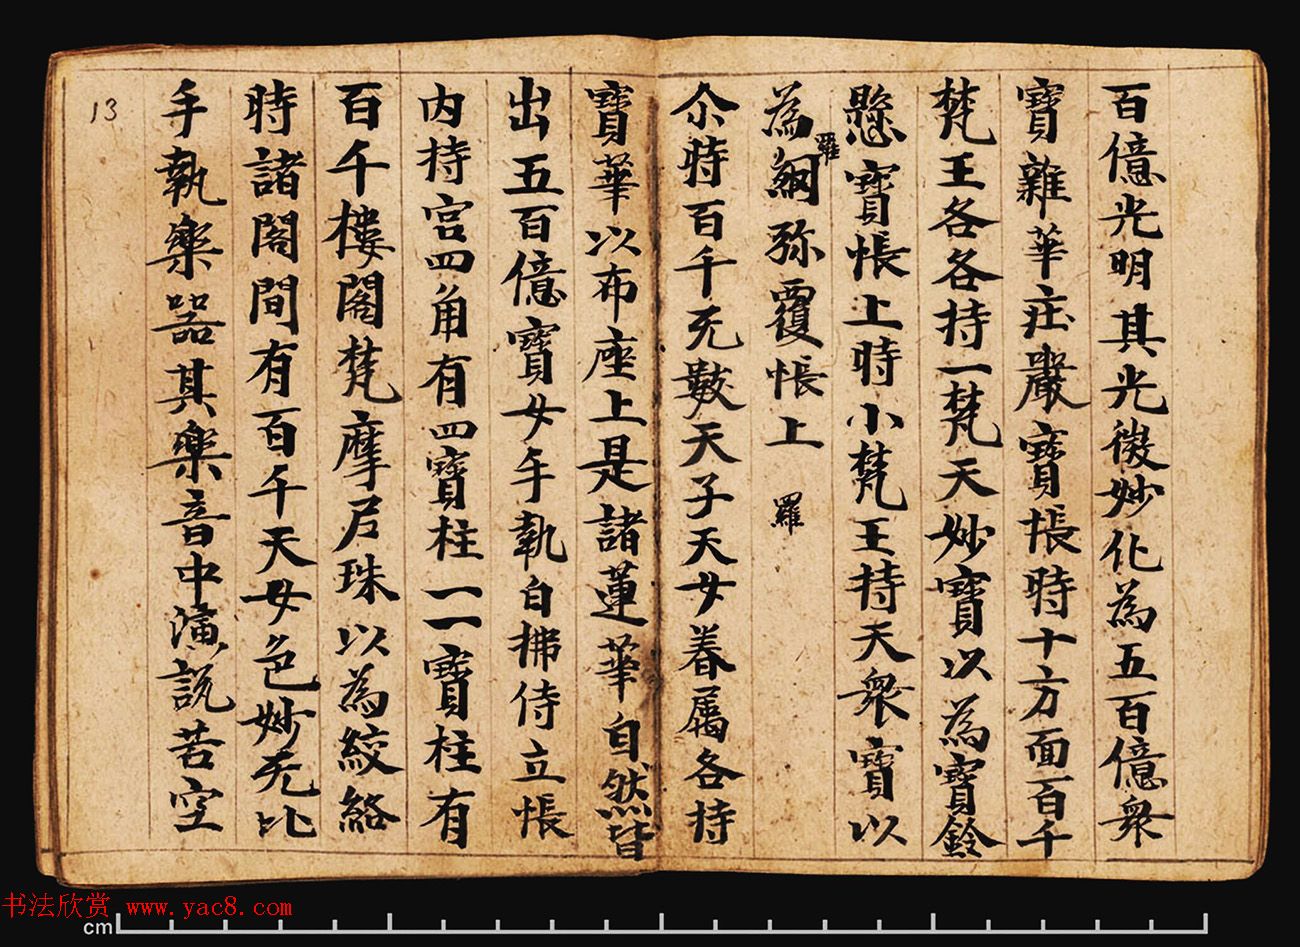 百億光明其光微妙化為五百億衆
寶雜華荘嚴寶帳時十方面百千
梵王各各持一梵天妙寶以為寶鈴
懸寶帳上時小梵王持天衆寶以
羅
為網弥覆帳上 羅
尒時百千无數天子天女眷属各持
寶華以布座上是諸蓮華自然皆
出五百億寶女手執白拂侍立帳
内持宫四角有四寶柱一一寶柱有
百千樓閣梵摩尼珠以為絞絡
時諸閣間有百千天女色妙无比
手執樂器其樂音中演說苦空
13
书法欣赏 www.yac8.com
cm